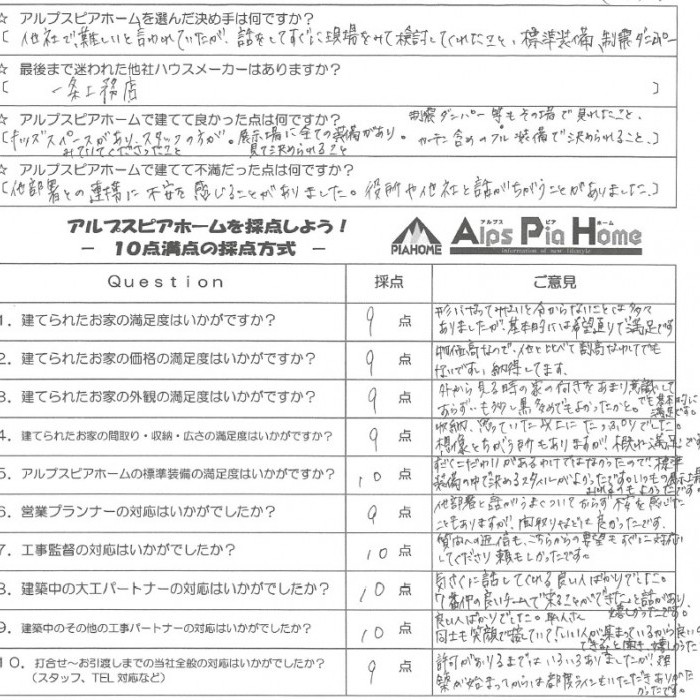 ☆ アルプスピアホームを選んだ決め手は何ですか?
〔他社で、難しいと言われていたが、話をしてすぐに現場をみて検討してくれたこと、標準装備、制震ダンパー
☆ 最後まで迷われた他社ハウスメーカーはありますか?
〔 一条工務店 〕
☆ アルプスピアホームで建てて良かった点は何ですか?
制震ダンパー等もその場で見れたこと、
〔キッズスペースがあり、スタッフの方が 展示場に全ての装備があり。 カーテン含めのフル装備で決められること、〕
みていてくださったこと 見て決められること
☆ アルプスピアホームで建てて不満だった点は何ですか?
〔他部署との連携に不安を感じることがありました。役所や他社と話がちがうことがありました。〕
アルプスピアホームを採点しよう!
－ 10点満点の採点方式 －
PIAHOME
アルプス ピア ホーム
Alps Pia Home
information of new lifestyle
Question 採点 ご意見
1. 建てられたお家の満足度はいかがですか? 9 点
形になってみないと分からないことは多々
ありましたが、基本的には希望通りで満足です
2. 建てられたお家の価格の満足度はいかがですか? 9 点
物価高なので、他と比べて割高なわけでも
ないですし納得してます。
3. 建てられたお家の外観の満足度はいかがですか? 9 点
外から見る時の家の付きをあまり意識して
おらず、もう少し黒多めでもよかったかと。でも基本的に
満足です。
4. 建てられたお家の間取り・収納・広さの満足度はいかがですか? 9 点
収納、思っていた以上にたっぷりでした。
想像とちがう所もありますが、概ね満足です
5. アルプスピアホームの標準装備の満足度はいかがですか? 10 点
すごくこだわりがあるわけではなかったので、標準
装備の中で決めるスタイルがよかったです。いつでも展示場
6. 営業プランナーの対応はいかがでしたか? 9 点
他部署と話がうまくついてからず不安を感じた
こともありますが、間取りなどに良かったです。
7. 工事監督の対応はいかがでしたか? 10 点
質問への返信も、こちらからの要望もすぐに対応
してくださり頼もしかったです。
8. 建築中の大工パートナーの対応はいかがでしたか? 10 点
気さくに話してくれる良い人ばかりでした。
「皆仲の良いチームで家ることができた」と話があり、
嬉しかったです。
9. 建築中のその他の工事パートナーの対応はいかがでしたか? 10 点
良い人ばかりでした。職人さん
同士も笑顔で話していて「いい人が集まっているから良い
10. 打合せ～お引渡しまでの当社全般の対応はいかがでしたか?
(スタッフ、TEL 対応など) 9 点
許可がおりるまではいろいろありましたが、建
築が始まってからは都度ラインもいただきありがた
かったです。